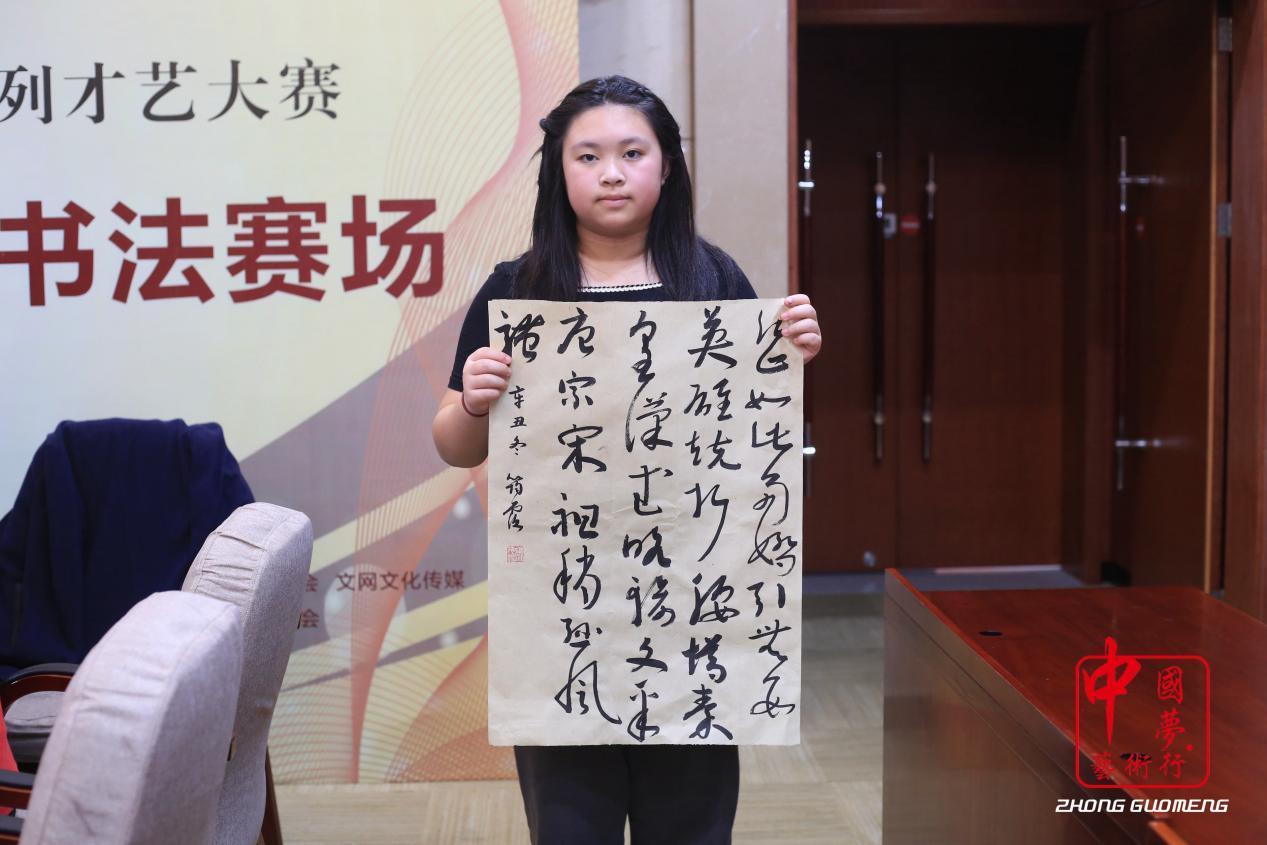 列才艺大赛
书法赛场
会 文网文化传媒
会
江山如此多嬌引無數
英雄競折腰惜秦
皇漢武略輸文采
唐宗宋祖稍遜風
騷
辛丑冬
中國夢
藝術行
ZHONG GUOMENG